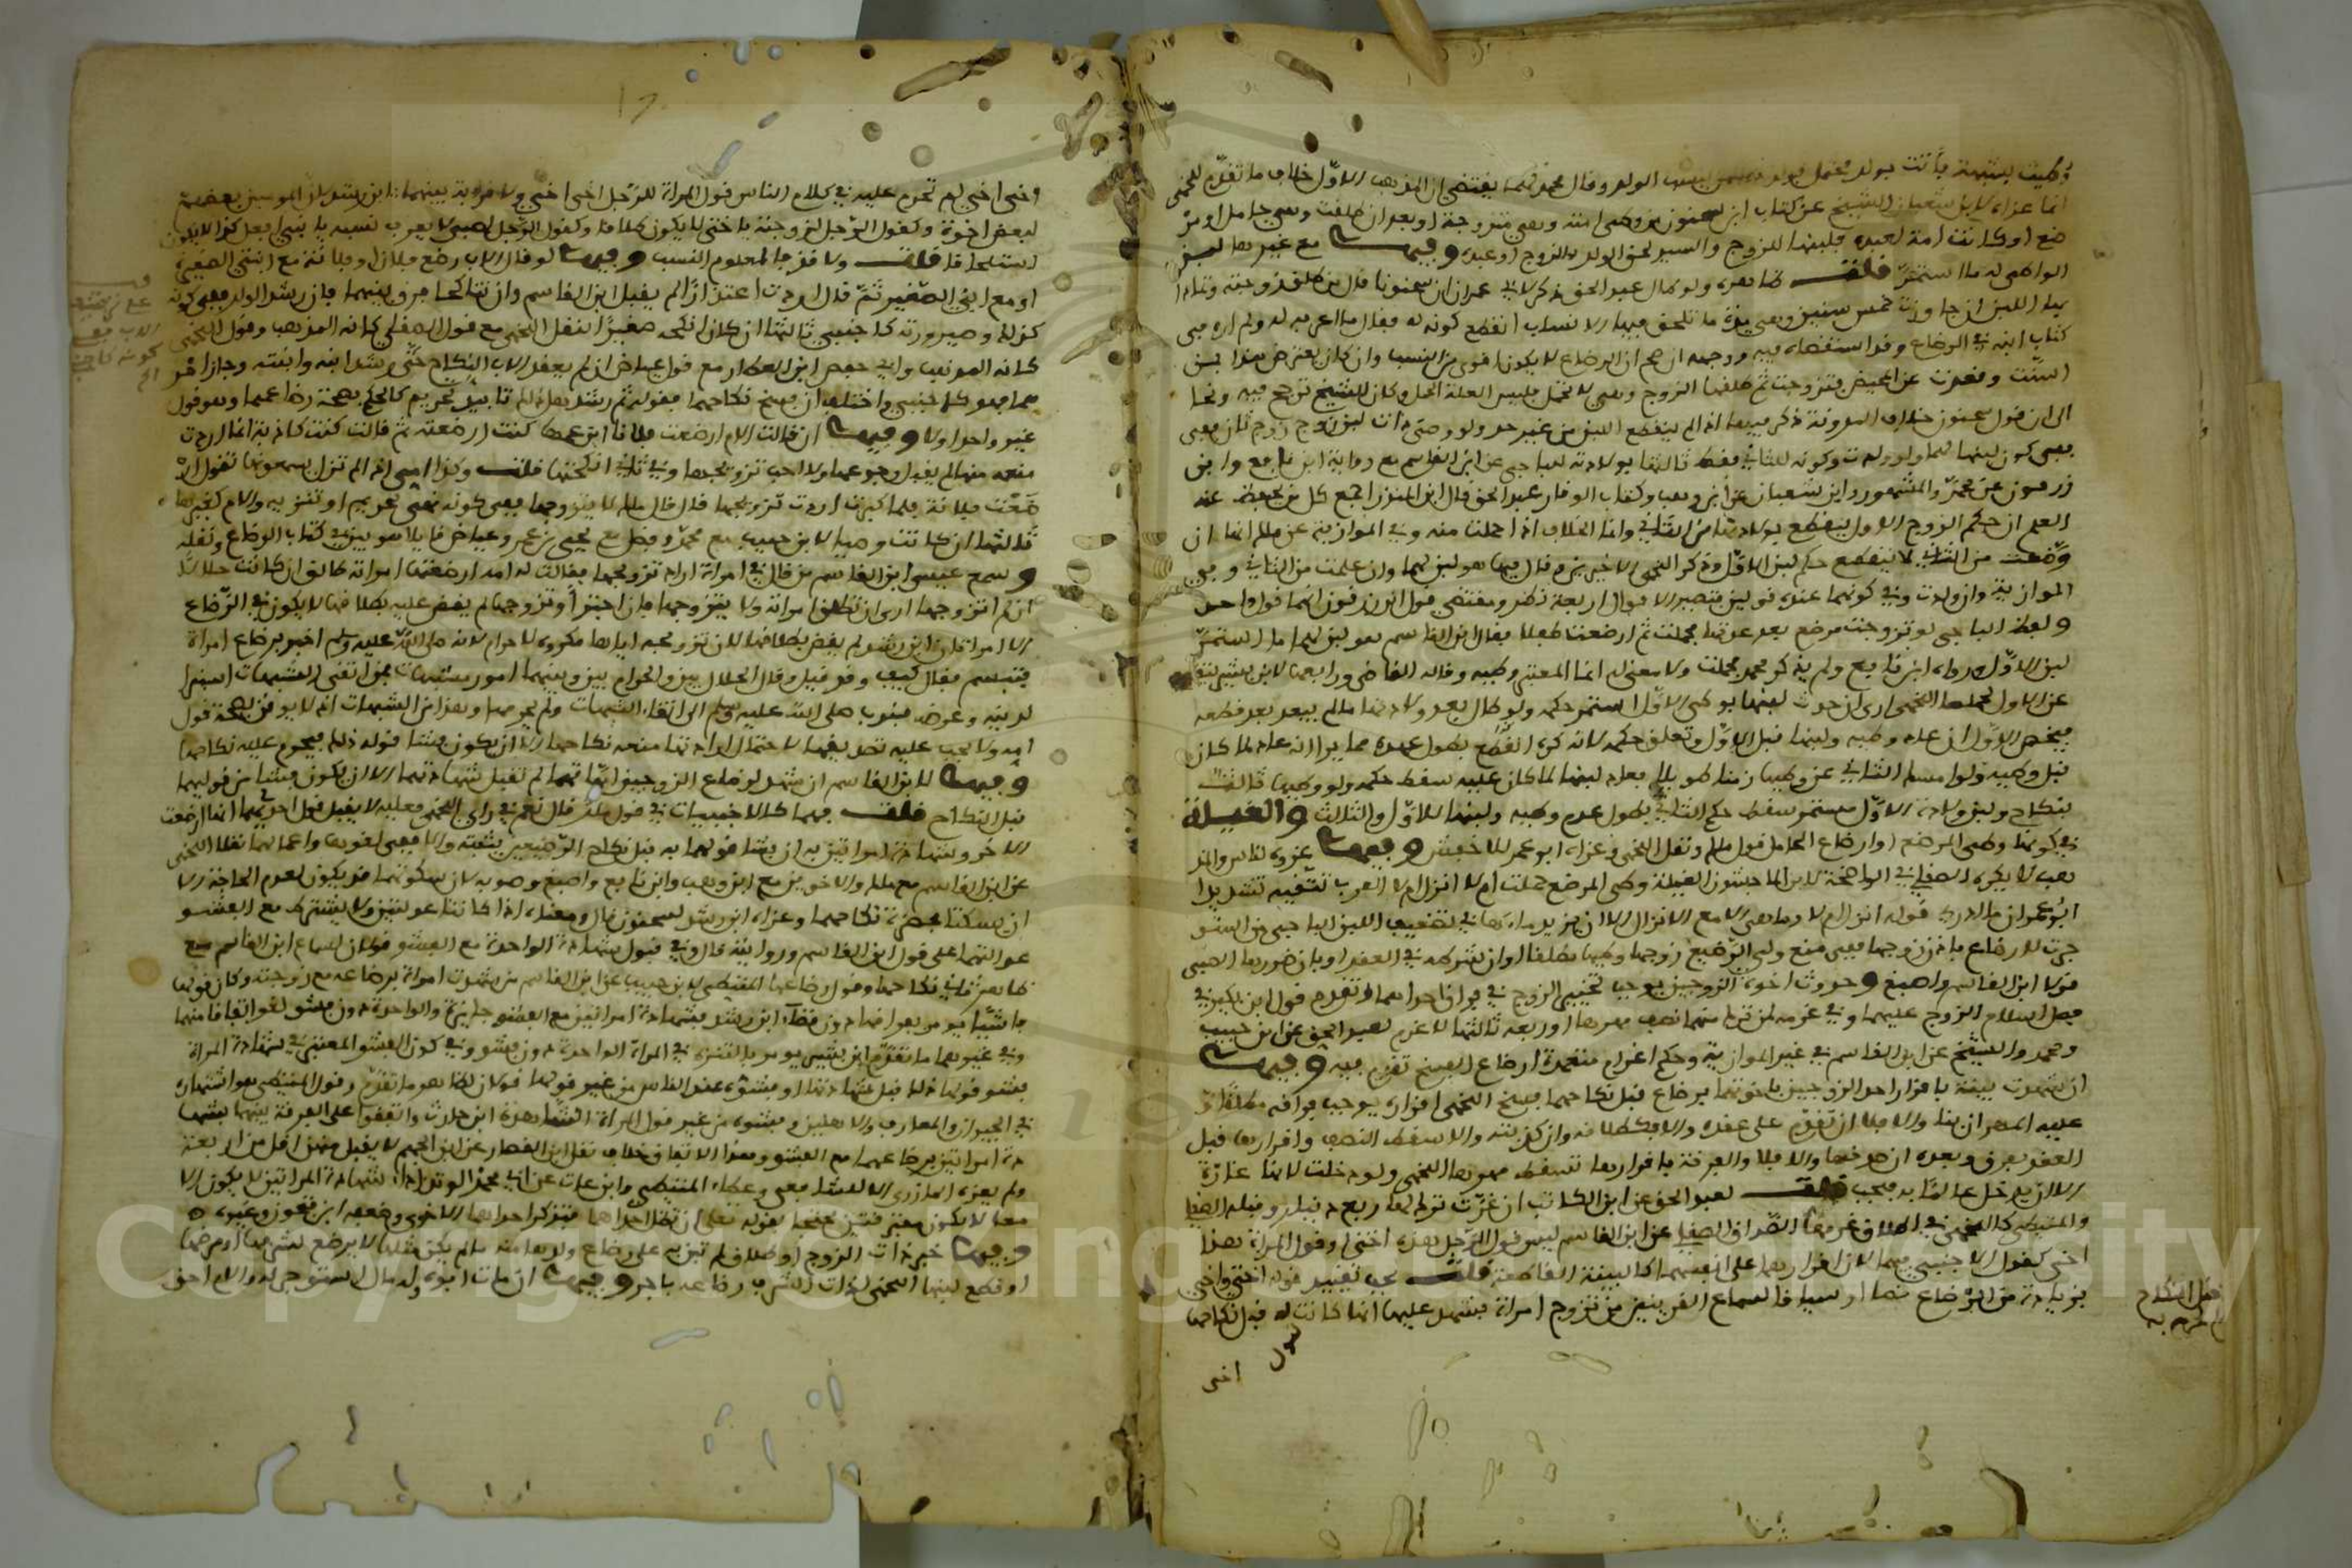 وطئت بشبهة فأتت بولد محتمل الولد وقال محمد يقتضي ان المذهب الاول خلاف ما تقدم للخمي
انما عزاه لابن شعبان الشيخ عن كتاب ابن سحنون من وطئ امته وهي متزوجة او بعد ان طلقت وهي حامل او
ضع او كانت امة لعبده فلبنها للزوج والسيد لحق الولد بالزوج او عبده وفيها مع غيرها لبن
الواطئ له ما استمر قلت ظاهره ولو طال عبد الحق ذكر لابي عمران ان سحنونا قال من طلق زوجته وتمادى
بها اللبن ان جاوزت خمس سنين وهي مدة ما تلحق فيها الانساب انقطع كونه له فقال ما اعرفه له ولم اره في
كتاب ابنه في الرضاع وقد استقصاه فيه ووجهه ان صح ان الرضاع لا يكون اقوى من النسب وان كان يعترض هذا بمن
اسنت وقعدت عن المحيض فتزوجت ثم طلقها الزوج وهي لا تحمل فليس العلة الحمل وكان للشيخ ترجح فيه ونحا
الى ان قول سحنون خلاف المدونة ذكر فيها اذا لم ينقطع اللبن من غير حد ولو وطئ ذات لبن زوج زوج ثان ففي
كون لبنها لهما ولو ولدت وكونه للثاني فقط ثالثها بولادته للباجي عن ابن القاسم مع رواية ابن نافع وابن
زرقون عن محمد والمشهور وابن شعبان عن ابن وهب وكتاب الوقار عبد الحق قال ابن المنذر اجمع كل من يحفظ عنه
العلم ان حكم الزوج الاول ينقطع بولادتها من الثاني وانما الخلاف اذا حملت منه وفي الموازية عن مالك انها ان
وضعت من الثاني لا ينقطع حكم لبن الاول وذكر اللخمي الاخير بزيادة قال فيها هو لبن لهما وان علمت من الثاني وفي
الموازية وان ولدت وفي كونهما عنده قولين فتصير الاقوال اربعة نظر ومقتضى قول ابن زرقون انهما قول واحد
ولفظ الباجي لو تزوجت مرضع بعد عدتها فحملت ثم ارضعت طفلا فقال ابن القاسم هو لبن لهما ما استمر
لبن الاول ورواه ابن نافع ولم يذكر محمد فحملت ولا معنى له انما المعتبر وطئه وقاله القاضي ورابعها لابن بشير
عن الاول بحملها اللخمي ارى ان حدث لبنها بوطئ الاول استمر حكمه ولو طال بعد ولادتها ما لم يبعد بعد قطعه
الاول ان عاد وطئه ولبنها قبل الاول وتعلق حكمه لانه كره انقطع بطول عهده مما يرى انه عاد لما كان
قبل وطئه ولو امسك الثاني عن وطئها زمنا طويلا فعاد لبنها لما كان عليه سقط حكمه ولو وطئها ثالث
بنكاح ولبن ولادة الاول مستمر سقط حكم الثاني بطول عدم وطئه ولبنها للاول والثالث والغيلة
في كونها وطئ المرضع او ارضاع الحامل قول مالك ونقل اللخمي وعزاه ابو عمر للاخفش وفيها
لا يكره الصقلي في الواضحة لابن الماجشون الغيلة وطئ المرضع حملت ام لا انزل ام لا العرب تتقيه شديدا
ابو عمران ما ادري قوله انزل ام لا وما هي الا مع الانزال الا ان يريد ماءها في تضعيف اللبن الباجي من استؤ
جرت للارضاع باذن زوجها ففي منع ولي الرضيع زوجها وطئها مطلقا او ان شرطه في العقد او بان ضررها بالصبي
قولا ابن القاسم واصبغ وحدوث اخوة الزوجين يوجب تخيير الزوج في فراق احداهما وتقدم قول ابن بكير في
فصل اسلام الزوج عليهما وفي غرمه لمن ترك منهما نصف مهرها او ربعه ثالثها لا غرم لعبد الحق عن ابن حبيب
ومحمد والشيخ عن ابن القاسم في غير الموازية وحكم اغرام متعمدة ارضاع الفسخ تقدم فيه وفيها
ان شهدت بينة باقرار احد الزوجين باخوتهما برضاع قبل نكاحهما فسخ اللخمي اقراره يوجب فراقه مطلقا و
عليه المهر ان بنى والا فلا ان تقدم على عقده والا فكطلاقه وان كذبته والا سقط النصف واقرارها قبل
العقد وبعده ان صدقها والا فلا والفرقة باقرارها تسقط مهرها اللخمي ولو دخلت لانها غارة
الا ان يدخل عالما به فيجب قلت لعبد الحق عن ابن الكاتب ان غرت ترك لها ربع دينار وقبله الصقلي
والمتيطي كاللخمي في اطلاق غرمها الصداق الصقلي عن ابن القاسم ليس قول الرجل هذه اختي او قول المرأة هذا
اخي كقول الاجنبي فيهما لان اقرارهما على انفسهما كالبينة القاطعة قلت يجب تقييد قوله اختي واخي
بزيادة من الرضاع لسماع القرينين من تزوج امرأة فشهد عليها انها كانت له قبل نكاحها
اخي
قبل النكاح
واخي اخي لم تحرم عليه في كلام الناس قول المرأة للرجل اخي اخي ولا قرابة بينهما ابن رشد لان المومنين بعضهم
لبعض اخوة وكقول الرجل لزوجته يا اختي لا يكون طلاقا وكقول الرجل لصبي لا يعرف نسبه يا بني افعل كذا لا يكون
استلحاقا قلت ولا قذفا لمعلوم النسب وفيها لو قال الاب رضع فلان او فلانة مع ابنتي الصغيرة
او مع ابني الصغير ثم قال اردت اعتذارا لم يقبل ابن القاسم وان تناكحا فرق بينهما فان رشد الولد ففي كونه
كذلك وصيرورته كاجنبي ثالثها ان كان انكحه صغيرا لنقل اللخمي مع قول الصقلي كانه المذهب وقول اللخمي
كانه المذهب وابي حفص ابن العطار مع قول عياض ان لم يعقد الاب النكاح حتى رشد ابنه وابنته وجاز امر
هما فهو كاجنبي واختلف ان فسخ نكاحهما بقوله ثم رشد هل له تابيد تحريم كالحكم بصحة رضاعهما وهو قول
غير واحد او لا وفيها ان قالت الام ارضعت فلانا ابن عمها كنت ارضعته ثم قالت كنت كاذبة انما اردت
منعه منها لم يقبل رجوعها ولا احب تزويجها وفي ثاني انكحتها قلت وكذا امي اذا لم تزل يسمعونها تقول ار
ضعت فلانة فلما كبرت اردت تزويجها قال قال مالك لا يتزوجها ففي كونه نهي تحريم او تنزيه والام كغيرها
ثالثها ان كانت وصيا لابن حبيب مع محمد وفضل مع يحيى بن عمر وعياض قايلا هو بين في كتاب الرضاع ونقله
وسمع عيسى ابن القاسم من قال في امرأة اراد تزويجها فقالت له امه ارضعتها امراته طالق ان كانت حلالا
ان لم اتزوجها ارى ان تطلق امراته ولا يتزوجها فان اجترأ وتزوجها لم يقض عليه بطلاقها لا يكون في الرضاع
الا امراتان ابن رشد لم يقض بطلاقها لان تزويجه اياها مكروه لا حرام لانه صلى الله عليه وسلم اخبر برضاع امرأة
فتبسم فقال كيف وقد قيل وقال الحلال بين والحرام بين وبينهما امور مشتبهات فمن اتقى الشبهات استبرا
لدينه وعرضه فندب صلى الله عليه وسلم الى اتقاء الشبهات ولم يحرمها وهذا من الشبهات اذ لا يوقن بصحة قول
امه ولا يجب عليه تصديقها لاحتمال ارادتها منعه نكاحها الا ان يكون فشا قوله ذلك فيحرم عليه نكاحها
وفيها لابن القاسم ان شهد لرضاع الزوجين اماتهما لم تقبل شهادتهما الا ان يكون فشا من قولهما
قبل النكاح قلت فهما كالاجنبيات في قول مالك قال نعم في راي اللخمي فعليه لا يقبل قول احديهما انها ارضعت
الاخر وشهادة امراتين به ان فشا قولهما به قبل نكاح الرضيعين يثبته والا ففي لغوها واعمالها نقلا اللخمي
عن ابن القاسم مع مالك والاخوين مع ابن وهب وابن نافع واصبغ وصوبه لان سكوتهما قد يكون لعدم الحاجة الا
ان يسكتا بحضرة نكاحهما وعزاه ابن رشد لسحنون قال ومعناه اذا كانتا عدلتين ولا يشترط مع الفشو
عدالتهما على قول ابن القاسم وروايته قال وفي قبول شهادة الواحدة مع الفشو قولان لسماع ابن القاسم مع
ظاهر ثاني نكاحها وقول رضاعها المتيطي لابن حبيب عن ابن القاسم من شهدت امرأة برضاعه مع زوجته وكان قولها
فاشيا يومر بفراقها دون قضاء ابن رشد شهادة امراتين مع الفشو جايزة والواحدة دون فشو لغو اتفاقا منهما
وفي غيرهما ما تقدم ابن بشير يومر بالتنزه في المرأة الواحدة دون فشو وفي كون الفشو المعتبر في شهادة المرأة
فشو قولها ذلك قبل شهادتها او فشوه عند الناس من غير قولها قولان لظاهر ما تقدم وقول المتيطي هو اشتهاره
في الجيران والمعارف والاهلين وفشوه من غير قول المرأة الشاهدة ابن حارث واتفقوا على الفرقة بينهما بشهـ
دة امراتين برضاعهما مع الفشو وهذا الاتفاق خلاف نقل ابن القصار عن ابن الجهم لا يقبل منهن اقل من اربعة
ولم يعزه المازري الا للشافعي وعطاء المتيطي وابن عات عن ابي محمد الوتد اداء شهادة المراتين لا يكون الا
معا لا يكون مفترقتين محتجا بقوله تعالى ان تضل احداهما فتذكر احداهما الاخرى وضعفه ابن فتحون وغيره
وفيها خير ذات الزوج او طلاق لم تبن على رضاع ولدها منه ما لم يكن مثلها لا يرضع لشرفها او مرضها
او قطع لبنها اللخمي لذات الشرف رضاعه باجر وفيها ان مات ابوه وله مال استوجر له والام احق